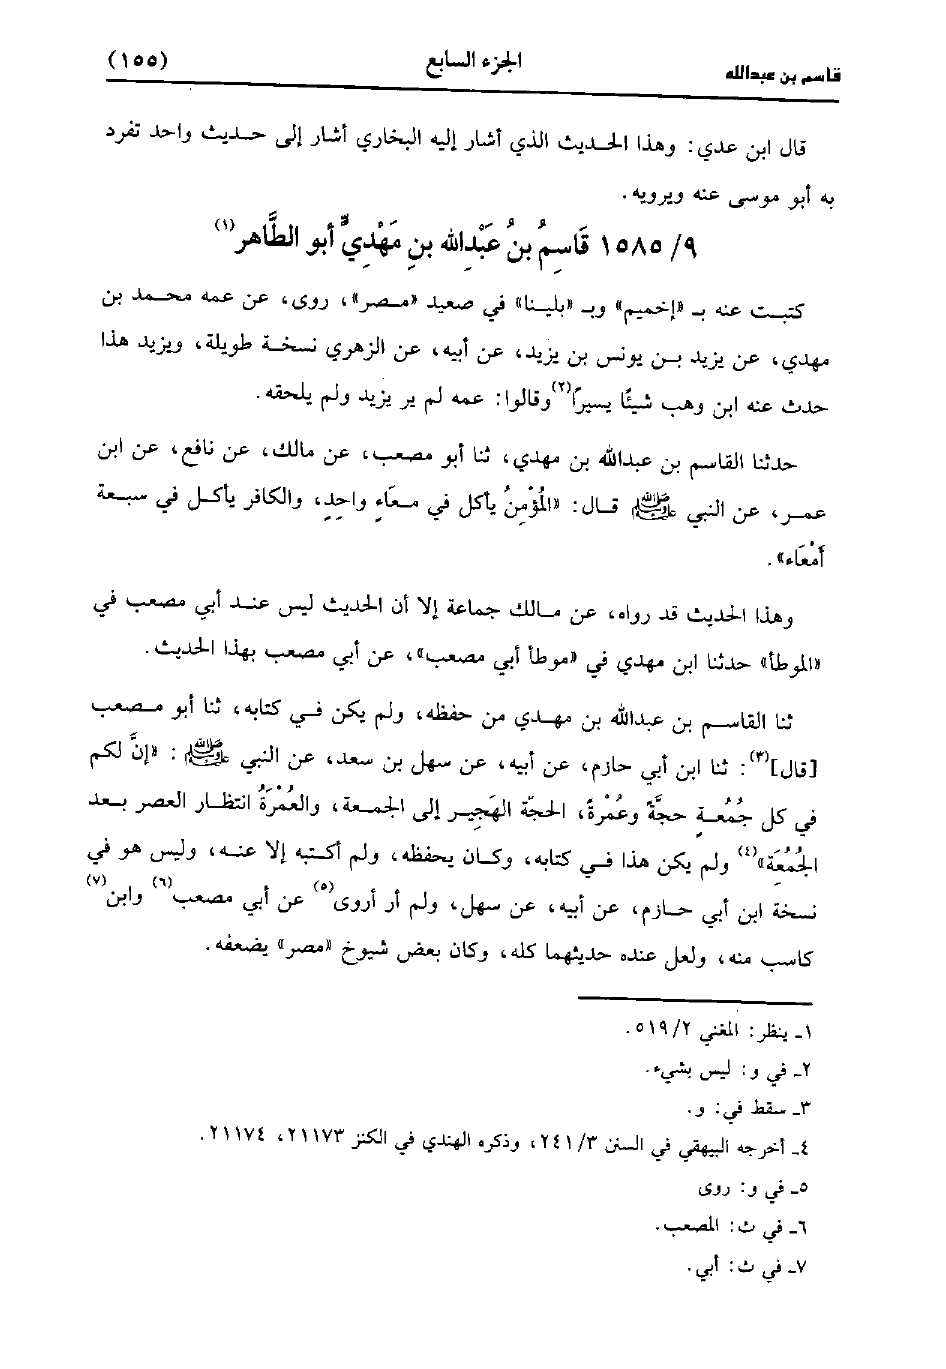 قاسم بن عبدالله الجزء السابع (١٥٥)
قال ابن عدي: وهذا الحديث الذي أشار إليه البخاري أشار إلى حديث واحد تفرد
به أبو موسى عنه ويرويه.
٩/ ١٥٨٥ قَاسِمُ بنُ عَبْدِالله بنِ مَهْدِيٍّ أبو الطَّاهر(١)
كتبت عنه بـ «إخميم» وبـ «بلينا» في صعيد «مصر»، روى، عن عمه محمد بن
مهدي، عن يزيد بن يونس بن يزيد، عن أبيه، عن الزهري نسخة طويلة، ويزيد هذا
حدث عنه ابن وهب شيئًا يسيرًا(٢) وقالوا: عمه لم ير يزيد ولم يلحقه.
حدثنا القاسم بن عبدالله بن مهدي، ثنا أبو مصعب، عن مالك، عن نافع، عن ابن
عمر، عن النبي ﷺ قال: «المُؤْمِنُ يأكل في معَاءٍ واحِدٍ، والكافر يأكل في سبعة
أَمْعَاء».
وهذا الحديث قد رواه، عن مالك جماعة إلا أن الحديث ليس عند أبي مصعب في
«الموطأ» حدثنا ابن مهدي في «موطأ أبي مصعب»، عن أبي مصعب بهذا الحديث.
ثنا القاسم بن عبدالله بن مهدي من حفظه، ولم يكن في كتابه، ثنا أبو مصعب
[قال](٣): ثنا ابن أبي حازم، عن أبيه، عن سهل بن سعد، عن النبي ﷺ: «إنَّ لكم
في كل جُمُعةٍ حجَّةً وعُمْرةً، الحجّة الهَجِير إلى الجمعة، والعُمْرَةُ انتظار العصر بعد
الجُمُعَةِ»(٤) ولم يكن هذا في كتابه، وكان يحفظه، ولم أكتبه إلا عنه، وليس هو في
نسخة ابن أبي حازم، عن أبيه، عن سهل، ولم أر أروى(٥) عن أبي مصعب(٦) وابن(٧)
كاسب منه، ولعل عنده حديثهما كله، وكان بعض شيوخ «مصر» يضعفه.
١ـ ينظر: المغني ٥١٩/٢.
٢ـ في و: ليس بشيء.
٣ـ سقط في: و.
٤ـ أخرجه البيهقي في السنن ٢٤١/٣، وذكره الهندي في الكنز ٢١١٧٣، ٢١١٧٤.
٥ـ في و: روى
٦ـ في ث: المصعب.
٧ـ في ث: أبي.